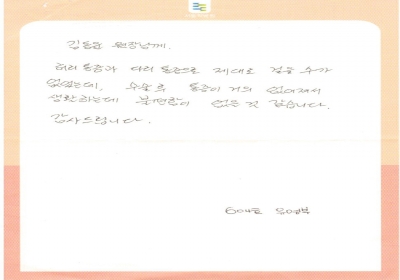 김동윤 원장님께.
허리 통증과 다리 통증으로 제대로 걸을 수가
없었는데, 수술 후 통증이 거의 없어져서
생활하는데 불편함이 없는 것 같습니다.
감사드립니다.
604호